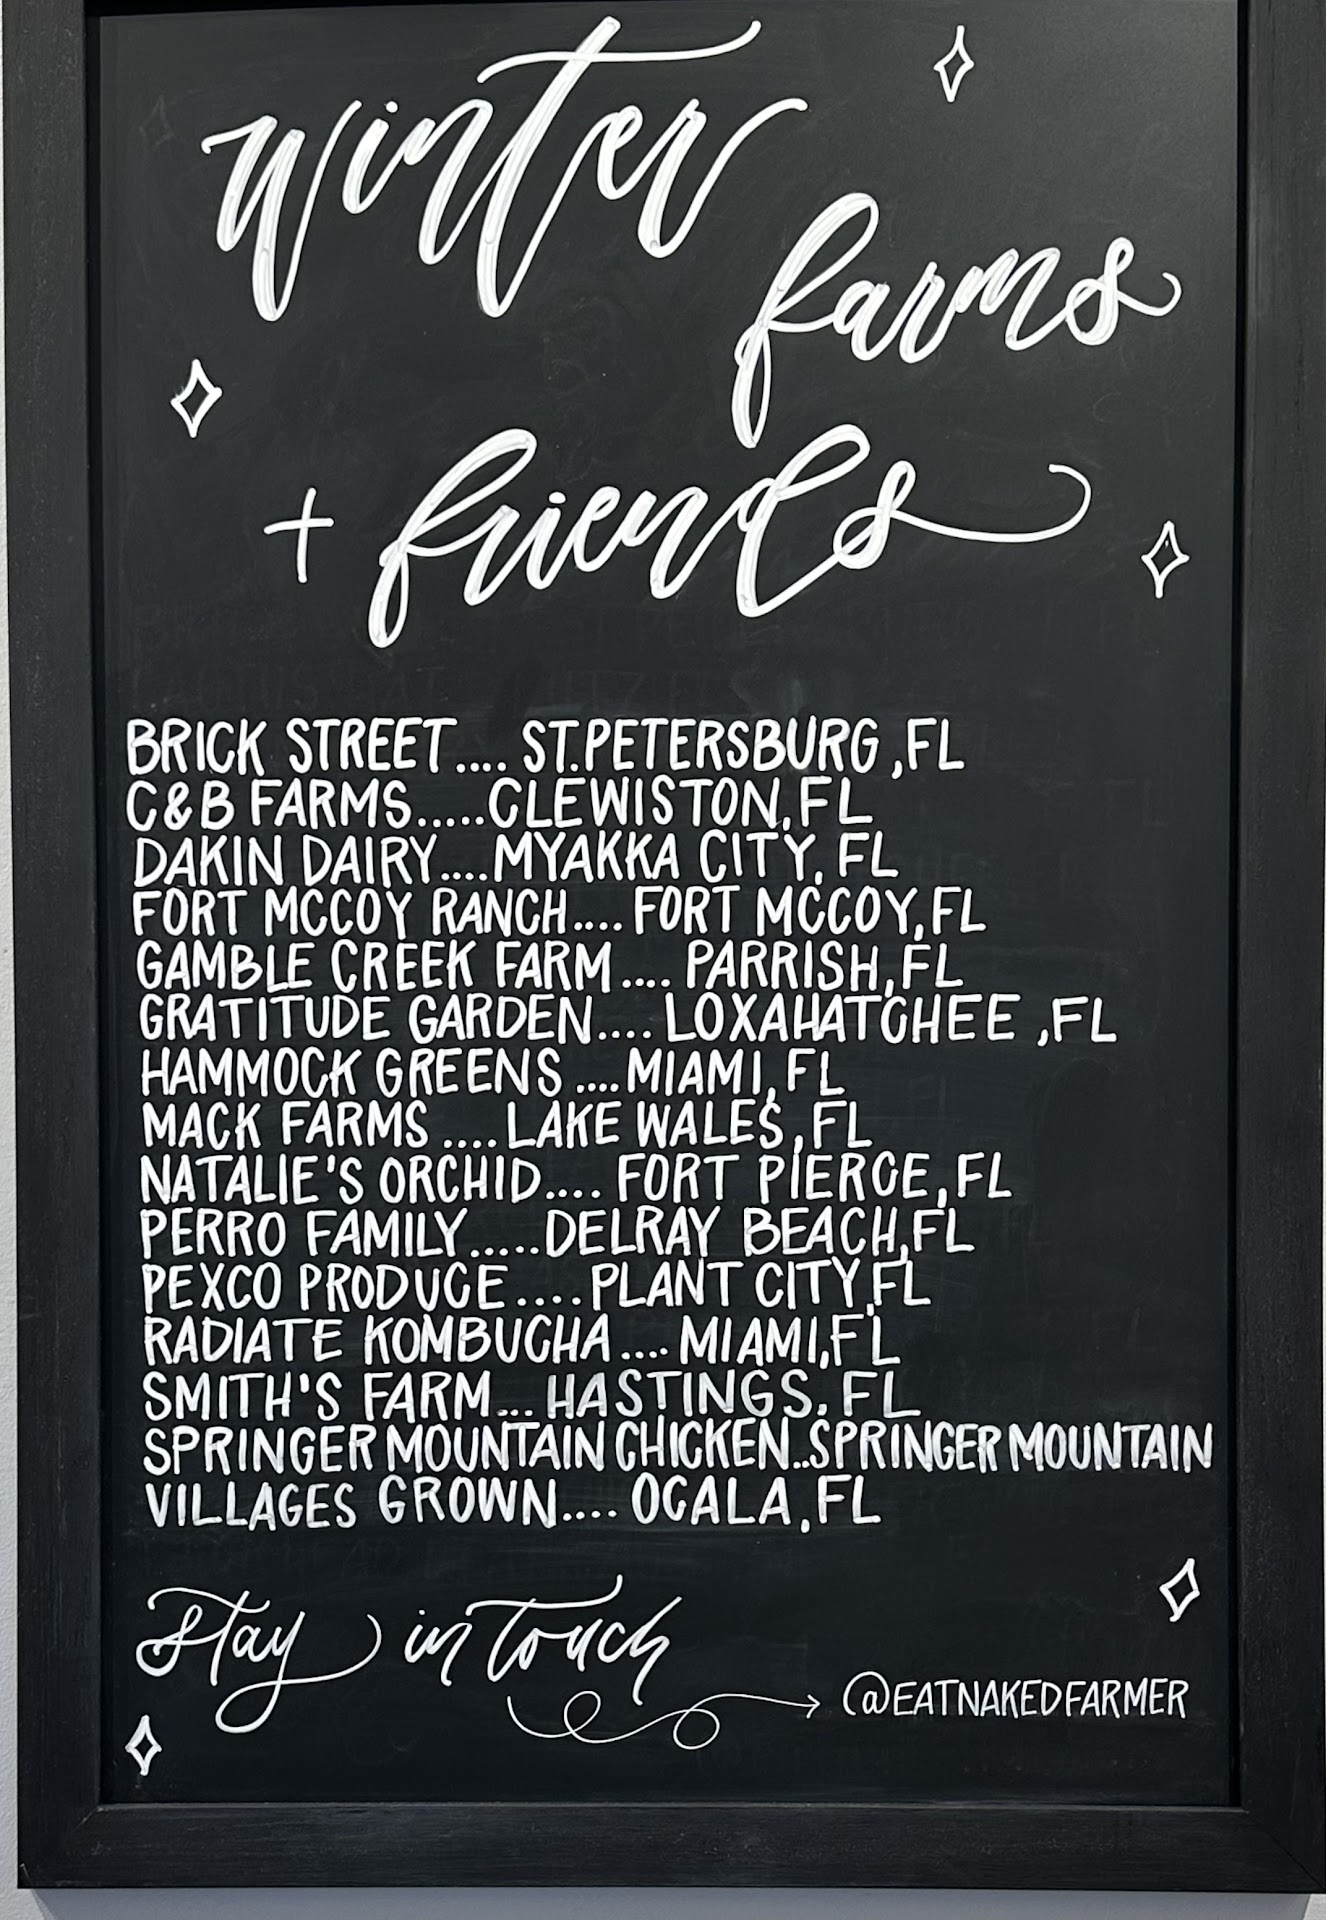 winter
farms
+ friends
BRICK STREET.... ST.PETERSBURG,FL
C&B FARMS.....CLEWISTON,FL
DAKIN DAIRY....MYAKKA CITY, FL
FORT MCCOY RANCH.... FORT MCCOY,FL
GAMBLE CREEK FARM.... PARRISH,FL
GRATITUDE GARDEN.... LOXAHATCHEE ,FL
HAMMOCK GREENS ....MIAMI, FL
MACK FARMS ....LAKE WALES,FL
NATALIE'S ORCHID.... FORT PIERCE,FL
PERRO FAMILY.....DELRAY BEACH,FL
PEXCO PRODUCE....PLANT CITY,FL
RADIATE KOMBUCHA.... MIAMI,FL
SMITH'S FARM... HASTINGS, FL
SPRINGER MOUNTAIN CHICKEN..SPRINGER MOUNTAIN
VILLAGES GROWN.... OCALA,FL
stay in touch
@EATNAKEDFARMER